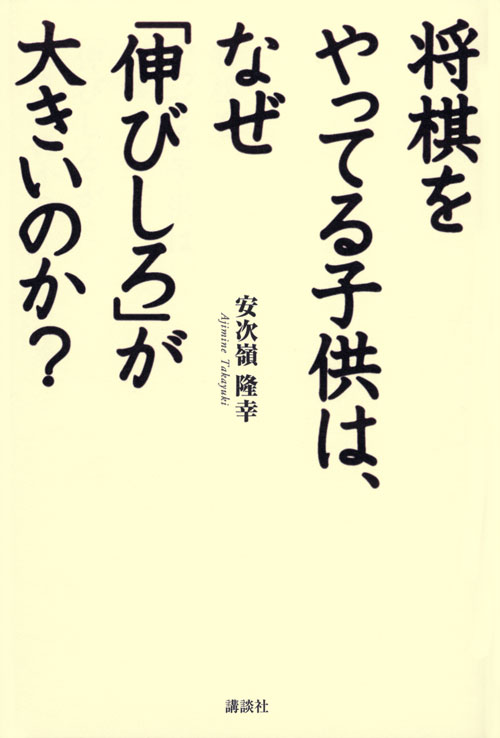 将棋を
やってる子供は、
なぜ
「伸びしろ」が
大きいのか？
安次嶺 隆幸
Ajimine Takayuki
講談社